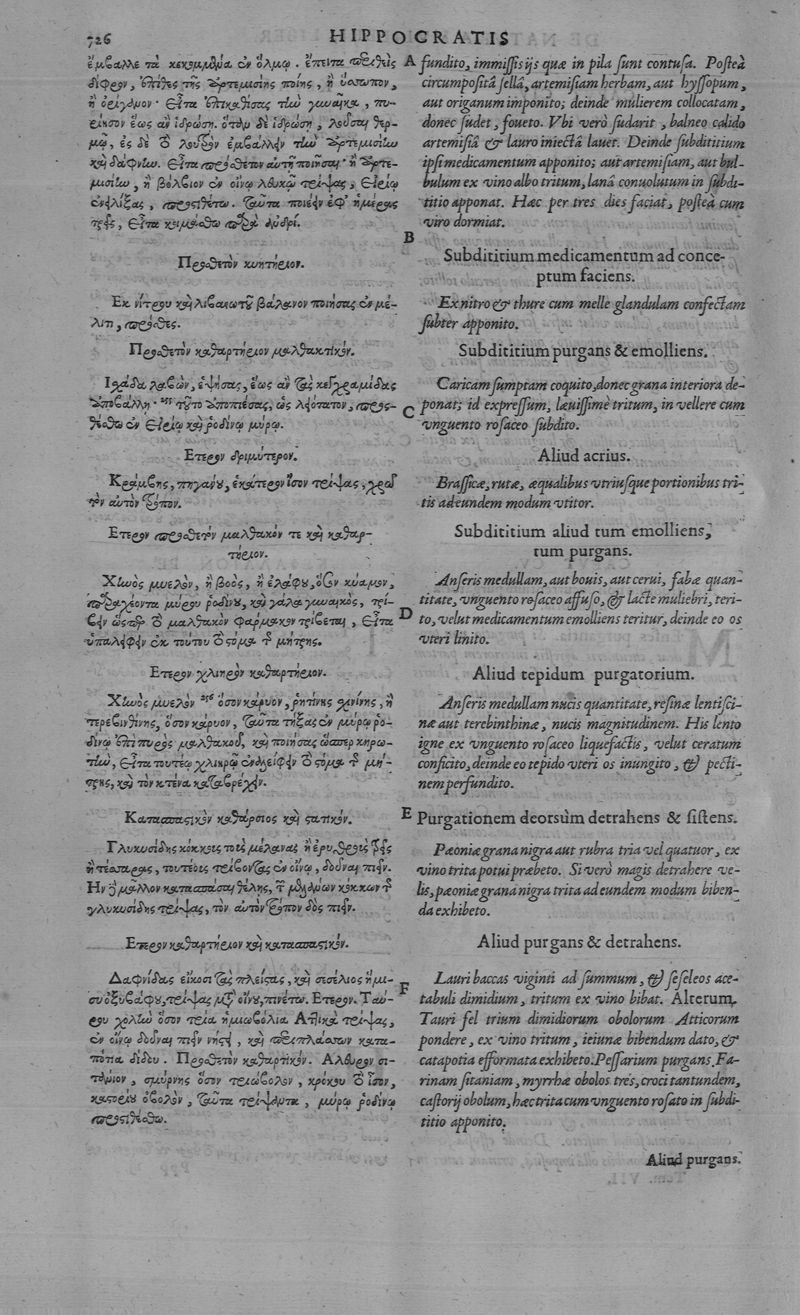 726
HIPPOCRATIS
ἔμβαλλε τὰ κεκομμένα ἐν ὅλμῳ. ἔπειτα περιθεὶς
δίφρον, ἐπίθες τῆς ἀρτεμισίης ποίης, ἢ ὕσσωπον,
ἢ ὀρίγανον· εἶτα ἐπικαθίσας τὴν γυναῖκα, πυ-
ρίησον ἕως ἂν ἱδρώσῃ. ὅταν δὲ ἱδρώσῃ, λοῦσαι θερ-
μῷ, ἐς δὲ τὸ λουτρὸν ἐμβαλεῖν τὴν ἀρτεμισίην
καὶ δάφνην. εἶτα πρόσθετον αὐτῇ ποιῆσαι· ἢ ἀρτε-
μισίην, ἢ βόλβιον ἐν οἴνῳ λευκῷ τρίψας, εἰρίῳ
ἐνελίξας, προστιθέτω. ταῦτα ποιέειν ἐφ' ἡμέρας
τρεῖς, εἶτα κοιμάσθω παρὰ ἀνδρί.
Προσθετὸν κυητήριον.
Ἐκ νίτρου καὶ λιβανωτοῦ βάλανον ποιήσας ἐν μέ-
λιτι, πρόσθες.
Προσθετὸν καθαρτήριον μαλθακτικόν.
Ἰσχάδα λαβὼν, ἑψήσας, ἕως ἂν τὰς κεγχραμίδας
ἀποβάλλῃ· τοῦτο ἀποπιέσας, ὡς λειότατον, προς-
θέσθω ἐν εἰρίῳ καὶ ῥοδίνῳ μύρῳ.
Ἕτερον δριμύτερον.
Κράμβης, πηγάνου, ἑκάτερον ἴσον τρίψας, χρῶ
τὸν αὐτὸν τρόπον.
Ἕτερον προσθετὸν μαλθακόν τε καὶ καθαρ-
τήριον.
Χηνὸς μυελὸν, ἢ βοὸς, ἢ ἐλάφου, ὅσον κύαμον,
παραχέοντα μύρου ῥοδίνου, καὶ γάλα γυναικὸς, τρί-
βειν ὥσπερ τὸ μαλθακὸν φάρμακον τρίβεται, εἶτα
ὑπαλείφειν ἐκ τούτου τὸ στόμα τῆς μήτρης.
Ἕτερον χλιηρὸν καθαρτήριον.
Χηνὸς μυελὸν ὅσον κάρυον, ῥητίνης σχινίνης, ἢ
τερεβινθίνης, ὅσον κάρυον, ταῦτα τήξας ἐν μύρῳ ῥο-
δίνῳ ἐπὶ πυρὸς μαλθακοῦ, καὶ ποιήσας ὥσπερ κηρω-
τὴν, εἶτα τουτέῳ χλιηρῷ ἐναλείφειν τὸ στόμα τῆς μή-
τρης, καὶ τὸν κτένα καταβρέχειν.
Κατασπαστικὸν καθάρσιος καὶ στατικόν.
Γλυκυσίδης κόκκους τοὺς μέλανας ἢ ἐρυθροὺς τρεῖς
ἢ τέσσαρας, τουτέους τρίβοντας ἐν οἴνῳ, δοῦναι πιεῖν.
Ἢν δὲ μᾶλλον κατασπάσαι θέλῃς, τῶν μελάνων κόκκων τῆς
γλυκυσίδης τρίψας, τὸν αὐτὸν τρόπον δὸς πιεῖν.
Ἕτερον καθαρτήριον καὶ κατασπαστικόν.
Δαφνίδας εἴκοσι τὰς πλείστας, καὶ σεσέλιος ἥμι-
συ ὀξυβάφου, τρίψας μετ' οἴνου, πινέτω. Ἕτερον. Ταύ-
ρου χολὴν ὅσον τρία ἡμιωβόλια Ἀττικὰ τρίψας,
ἐν οἴνῳ δοῦναι πιεῖν νήστῃ, καὶ περιπλάσσων κατα-
πότια δίδου. Προσθετὸν καθαρτικόν. Ἄλευρον σι-
τάνιον, σμύρνης ὅσον τριώβολον, κρόκου τὸ ἴσον,
καστορίου ὀβολὸν, ταῦτα τρίψαντα, μύρῳ ῥοδίνῳ
προστιθέσθω.
A fundito, immissis ijs quæ in pila sunt contusa. Posteà
circumpositâ sellâ, artemisiam herbam, aut hyssopum,
aut origanum imponito; deinde mulierem collocatam,
donec sudet, foueto. Vbi verò sudarit, balneo calido
artemisiâ & lauro iniectâ lauet. Deinde subdititium
ipsi medicamentum apponito; aut artemisiam, aut bul-
bulum ex vino albo tritum, lanâ conuolutum in subdi-
titio apponat. Hæc per tres dies faciat, posteà cum
viro dormiat.
B
Subdititium medicamentum ad conce-
ptum faciens.
Ex nitro & thure cum melle glandulam confectam
subter apponito.
Subdititium purgans & emolliens.
Caricam sumptam coquito, donec grana interiora de-
C ponat; id expressum, læuissimè tritum, in vellere cum
vnguento rosaceo subdito.
Aliud acrius.
Brassicæ, rutæ, æqualibus vtriusque portionibus tri-
tis ad eundem modum vtitor.
Subdititium aliud tum emolliens,
tum purgans.
Anseris medullam, aut bouis, aut cerui, fabæ quan-
titate, vnguento rosaceo affuso, & lacte muliebri, teri-
D to, velut medicamentum emolliens teritur, deinde eo os
vteri linito.
Aliud tepidum purgatorium.
Anseris medullam nucis quantitate, resinæ lentisci-
næ aut terebinthinæ, nucis magnitudinem. His lento
igne ex vnguento rosaceo liquefactis, velut ceratum
conficito, deinde eo tepido vteri os inungito, & pecti-
nem perfundito.
E Purgationem deorsùm detrahens & sistens.
Pæoniæ grana nigra aut rubra tria vel quatuor, ex
vino trita potui præbeto. Si verò magis detrahere ve-
lis, pæoniæ grana nigra trita ad eundem modum biben-
da exhibeto.
Aliud purgans & detrahens.
Lauri baccas viginti ad summum, & seseleos ace-
F tabuli dimidium, tritum ex vino bibat. Alterum.
Tauri fel trium dimidiorum obolorum Atticorum
pondere, ex vino tritum, ieiunæ bibendum dato, &
catapotia efformata exhibeto. Pessarium purgans. Fa-
rinam sitaniam, myrrhæ obolos tres, croci tantundem,
castorij obolum, hæc trita cum vnguento rosato in subdi-
titio apponito.
Aliud purgans.